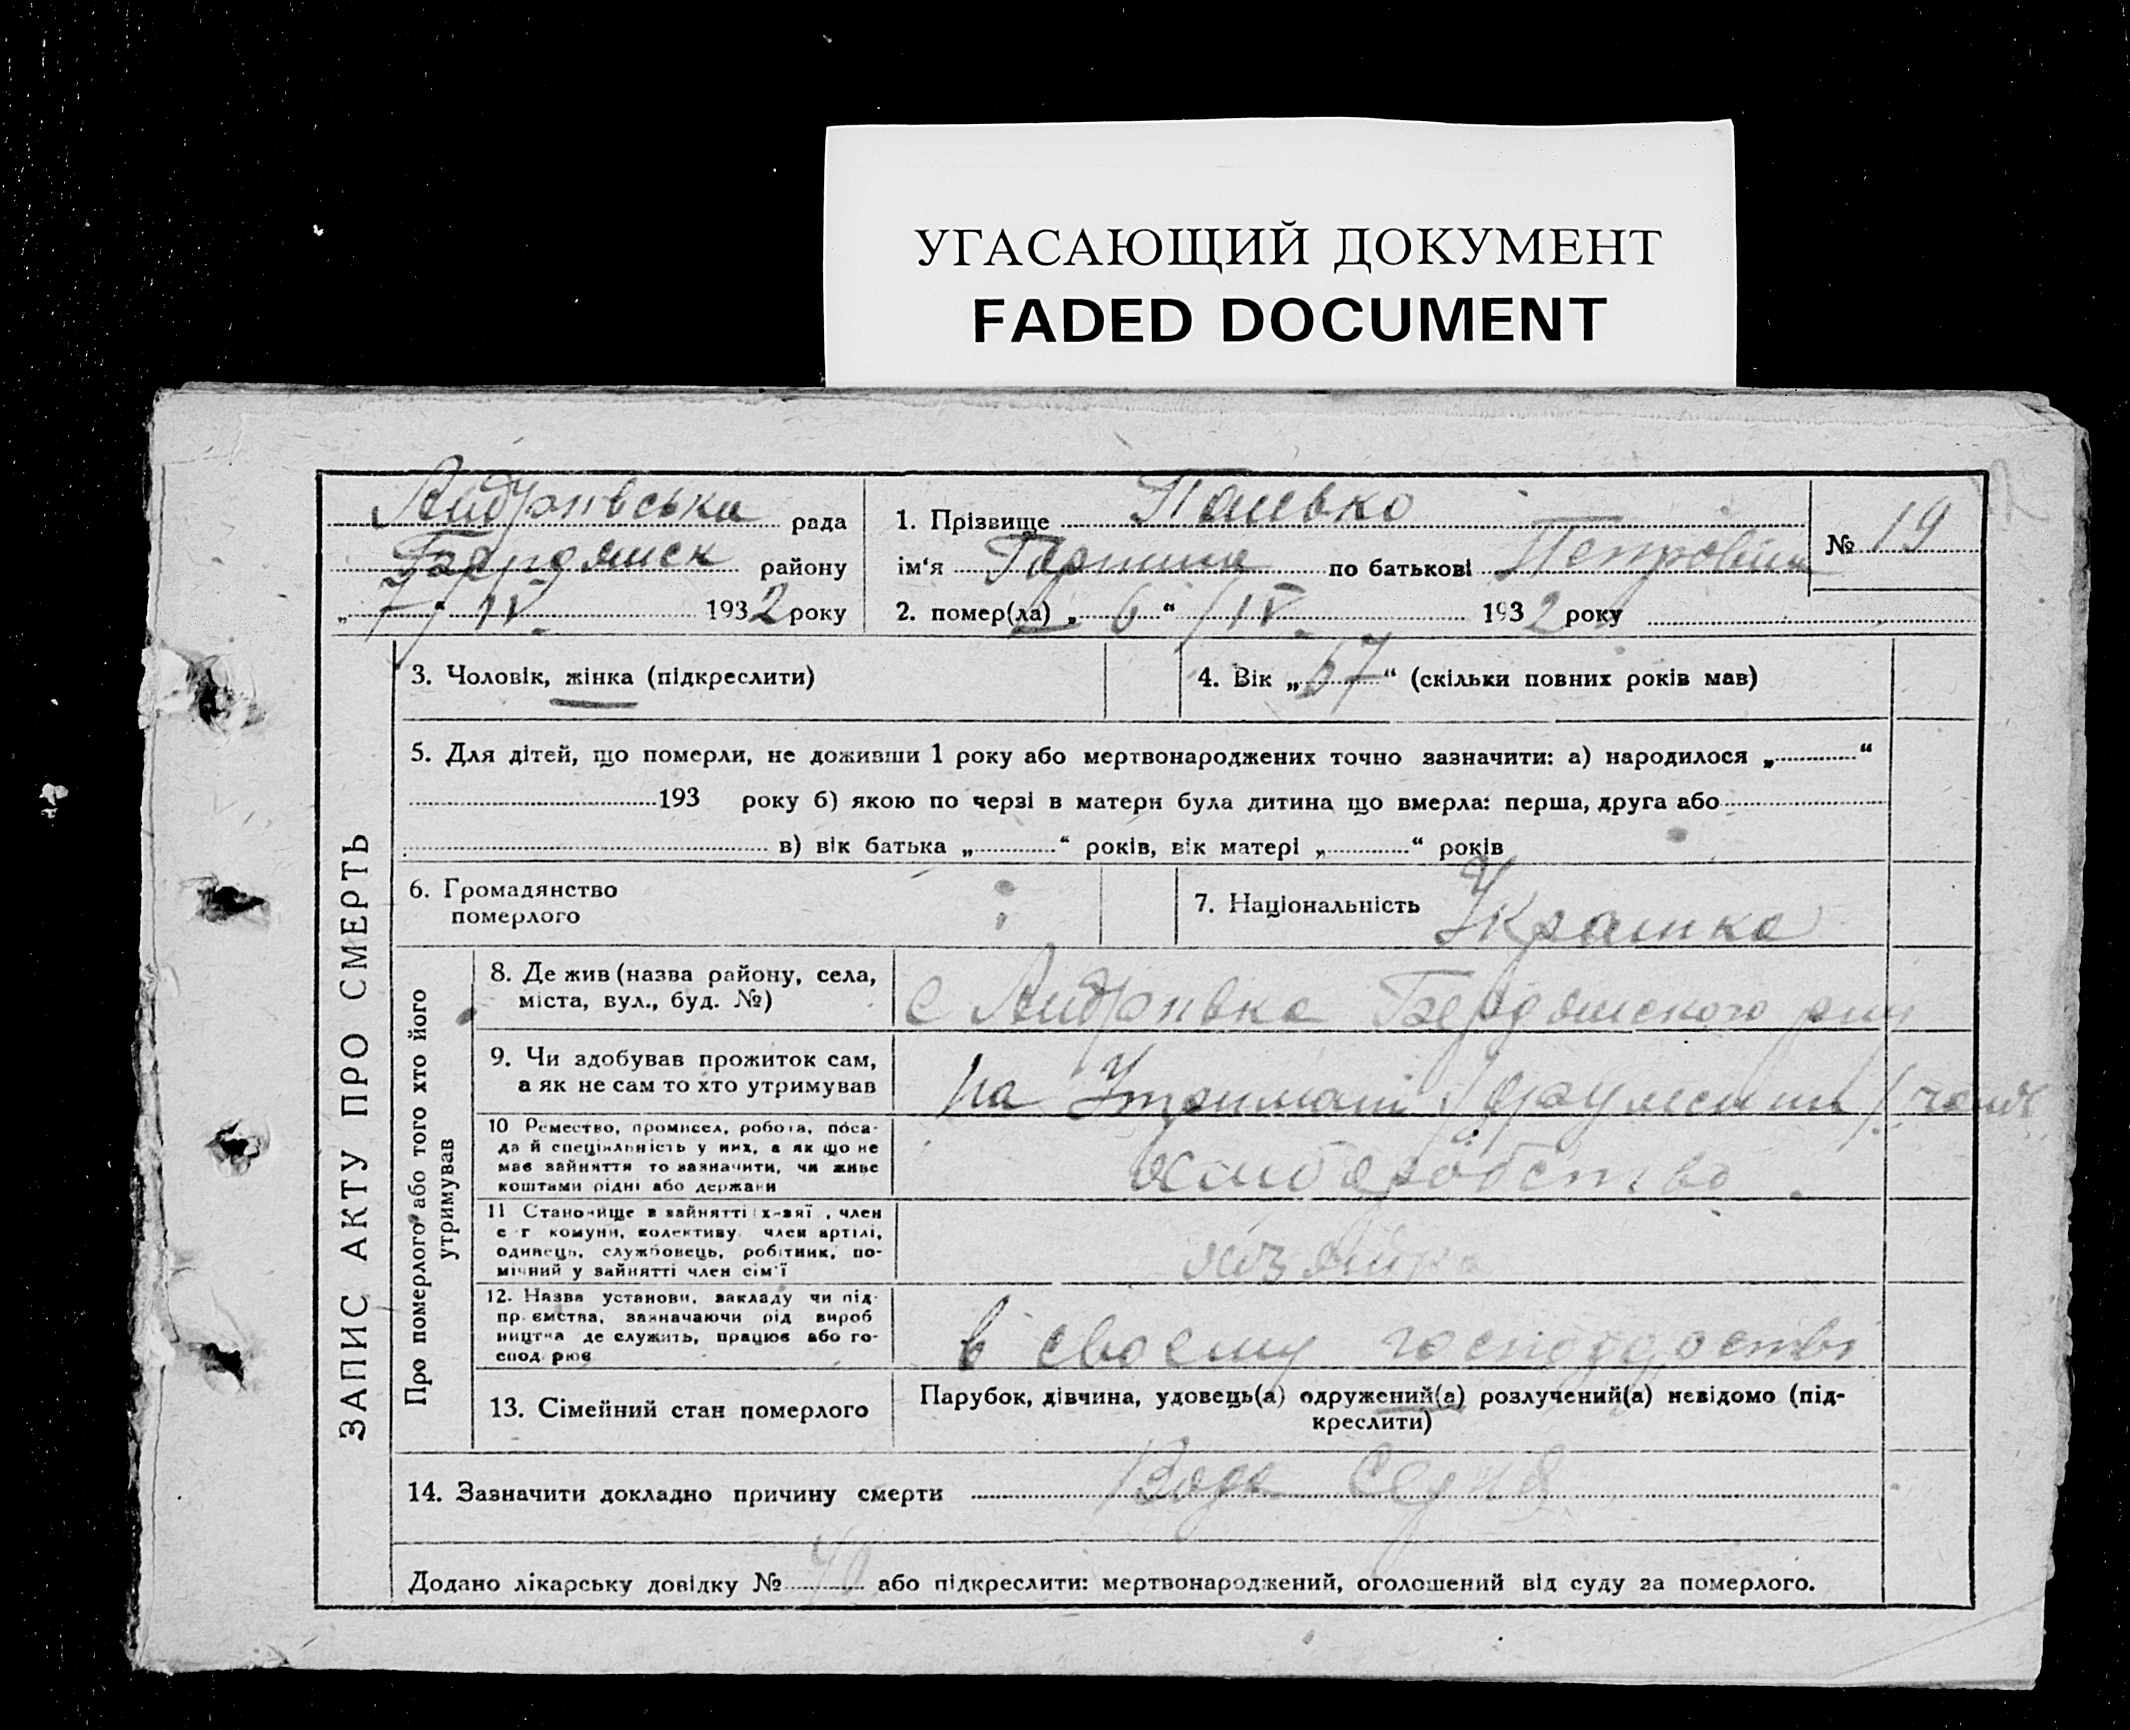 УГАСАЮЩИЙ ДОКУМЕНТ
FADED DOCUMENT
Андрівська рада
Бердянськ району
„ 7 “ IV. 1932 року
1. Прізвище Панько
ім‘я по батькові Петрівна
№ 19
2. помер(ла) „ 6 “ IV. 1932 року
ЗАПИС АКТУ ПРО СМЕРТЬ
3. Чоловік, жінка (підкреслити)
4. Вік „ 67 “ (скільки повних років мав)
5. Для дітей, що померли, не доживши 1 року або мертвонароджених точно зазначити: а) народилося „ “
193 року б) якою по черзі в матери була дитина що вмерла: перша, друга або
в) вік батька „ “ років, вік матері „ “ років
6. Громадянство
померлого
7. Національність Украинка
Про померлого або того хто його
утримував
8. Де жив (назва району, села,
міста, вул., буд. №)
с Андрівка Бердянского рну
9. Чи здобував прожиток сам,
а як не сам то хто утримував
на Утримані
10 Ремество, промисел, робота, поса-
да й спеціяльність у них, а як що не
має зайняття то зазначити, чи живе
коштами рідні або держави
хліборобство
11 Становище в зайнятті х-зяї , член
с г комуни, колективу член артілі,
одинець, службовець, робітник, по-
мічний у зайнятті член сім'ї
хозяйка
12. Назва установи, закладу чи під-
пр ємства, зазначаючи рід вироб
ництва де служить, працює або го-
спод рює
в своему господарстві
13. Сімейний стан померлого
Парубок, дівчина, удовець(а) одружений(а) розлучений(а) невідомо (під-
креслити)
14. Зазначити докладно причину смерти
Додано лікарську довідку № або підкреслити: мертвонароджений, оголошений від суду за померлого.